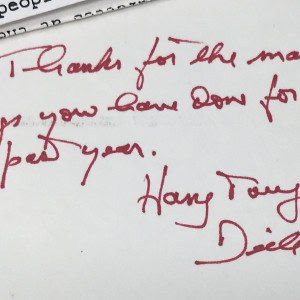 peopl
Thanks for the ma
gs you have done for
past year.
Hang Tough
Dick